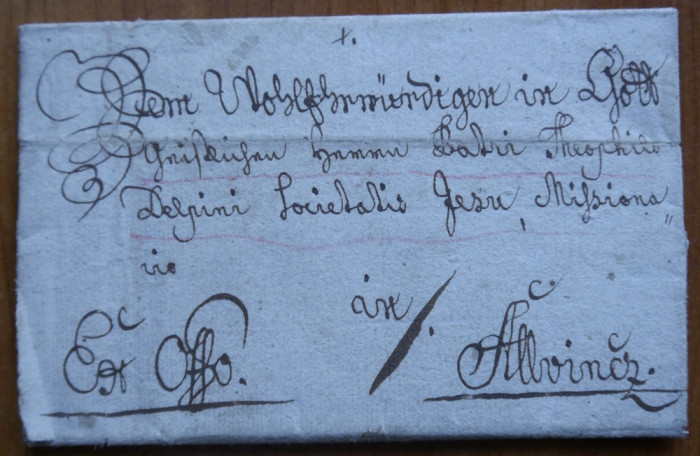 Dem Wohlehrwürdigen in Gott
Geistlichen Herrn Patri Theophilo
Delpini Societatis Jesu, Missiona„
rio
in
Ex Offo. Allvincz.